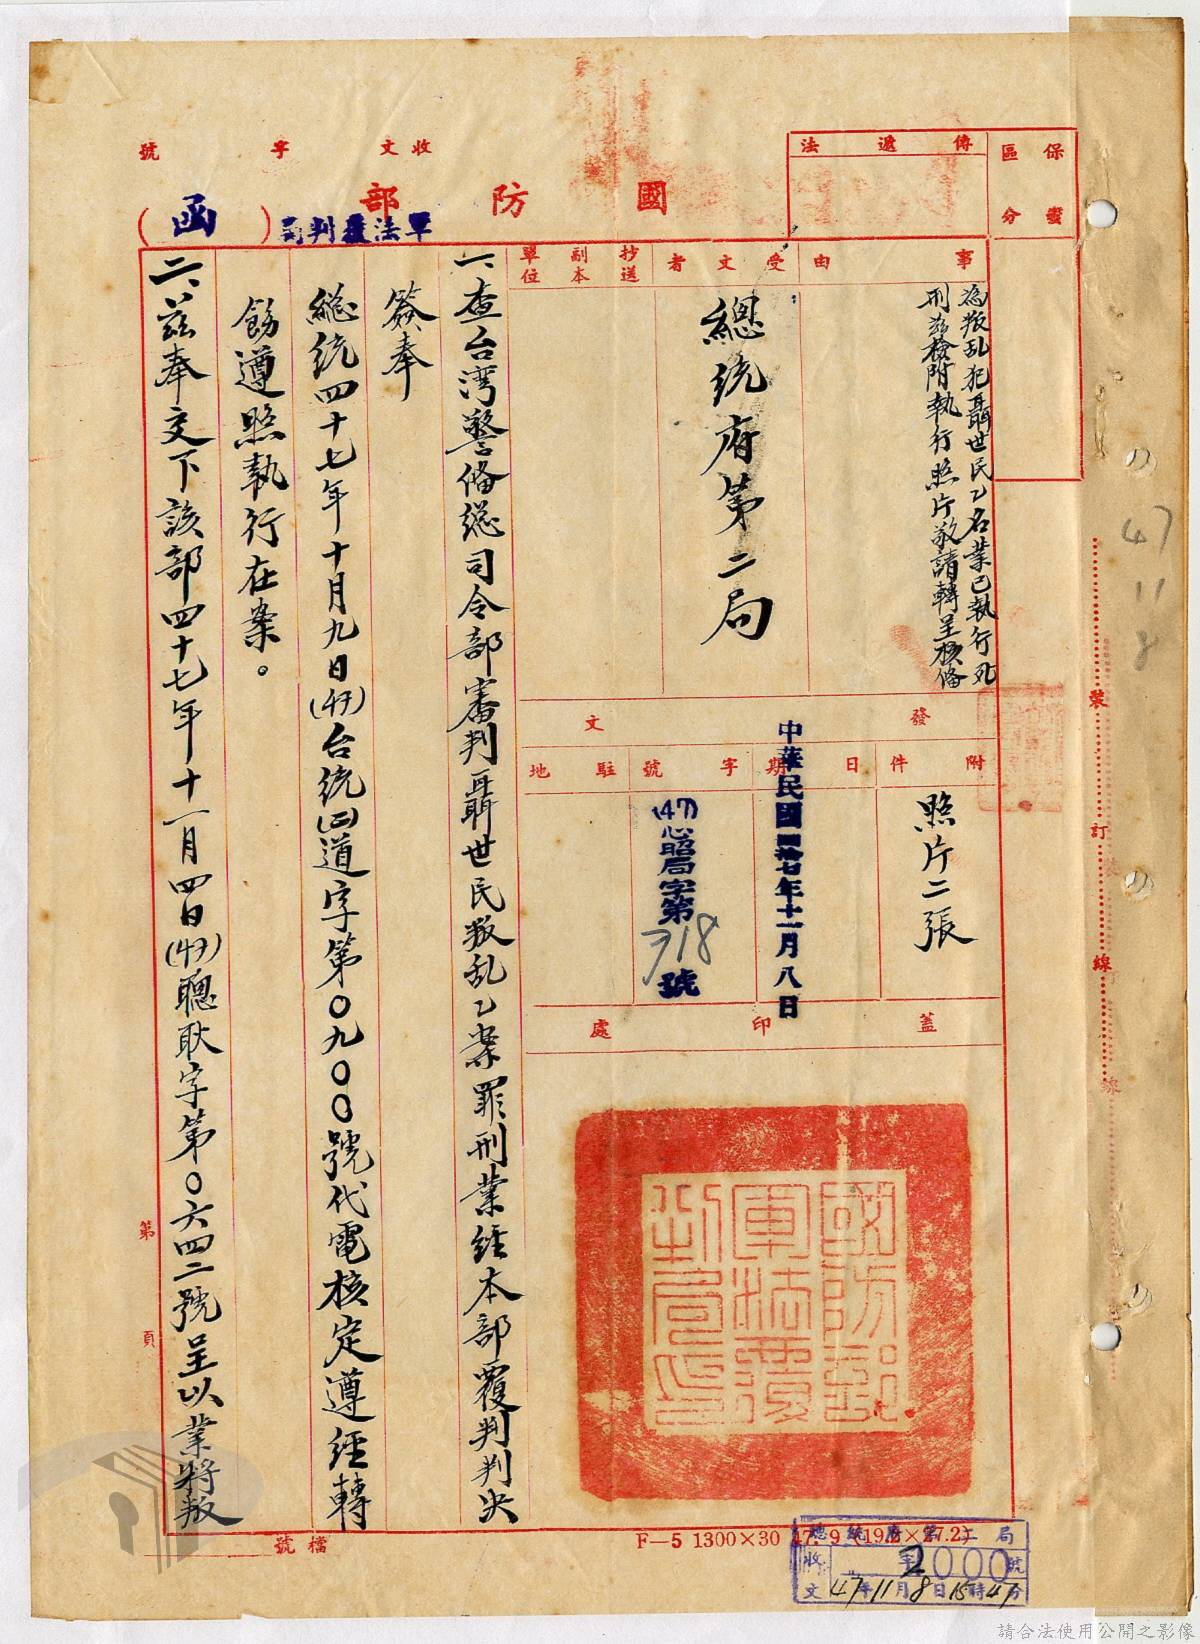 保密
區分
傳遞法
收文 字 號
國防部
軍法覆判局
(函)
事由
受文者
抄送
副本
單位
為叛乱犯聶世民乙名業已執行死
刑茲檢附執行照片敬請轉呈核備
總統府第二局
發文
附件
日期
字號
駐地
照片二張
中華民國四拾七年十一月八日
(47)心昭局字第718號
蓋印處
國防部
軍法覆
判局印
一、查台湾警備總司令部審判聶世民叛乱乙案罪刑業經本部覆判判決
簽奉
總統四十七年十月九日(47)台統(二)道字第〇九〇〇號代電核定遵經轉
飭遵照執行在案。
二、茲奉交下該部四十七年十一月四日(47)聰耿字第〇六四二號呈以業將叛
47
11
8
裝
訂
線
第
頁
檔號
F—5 1300×30 47. 9 (19.2×27.2)
總統府第二局
收 字2000號
文 47年11月8日15時47分
請合法使用公開之影像